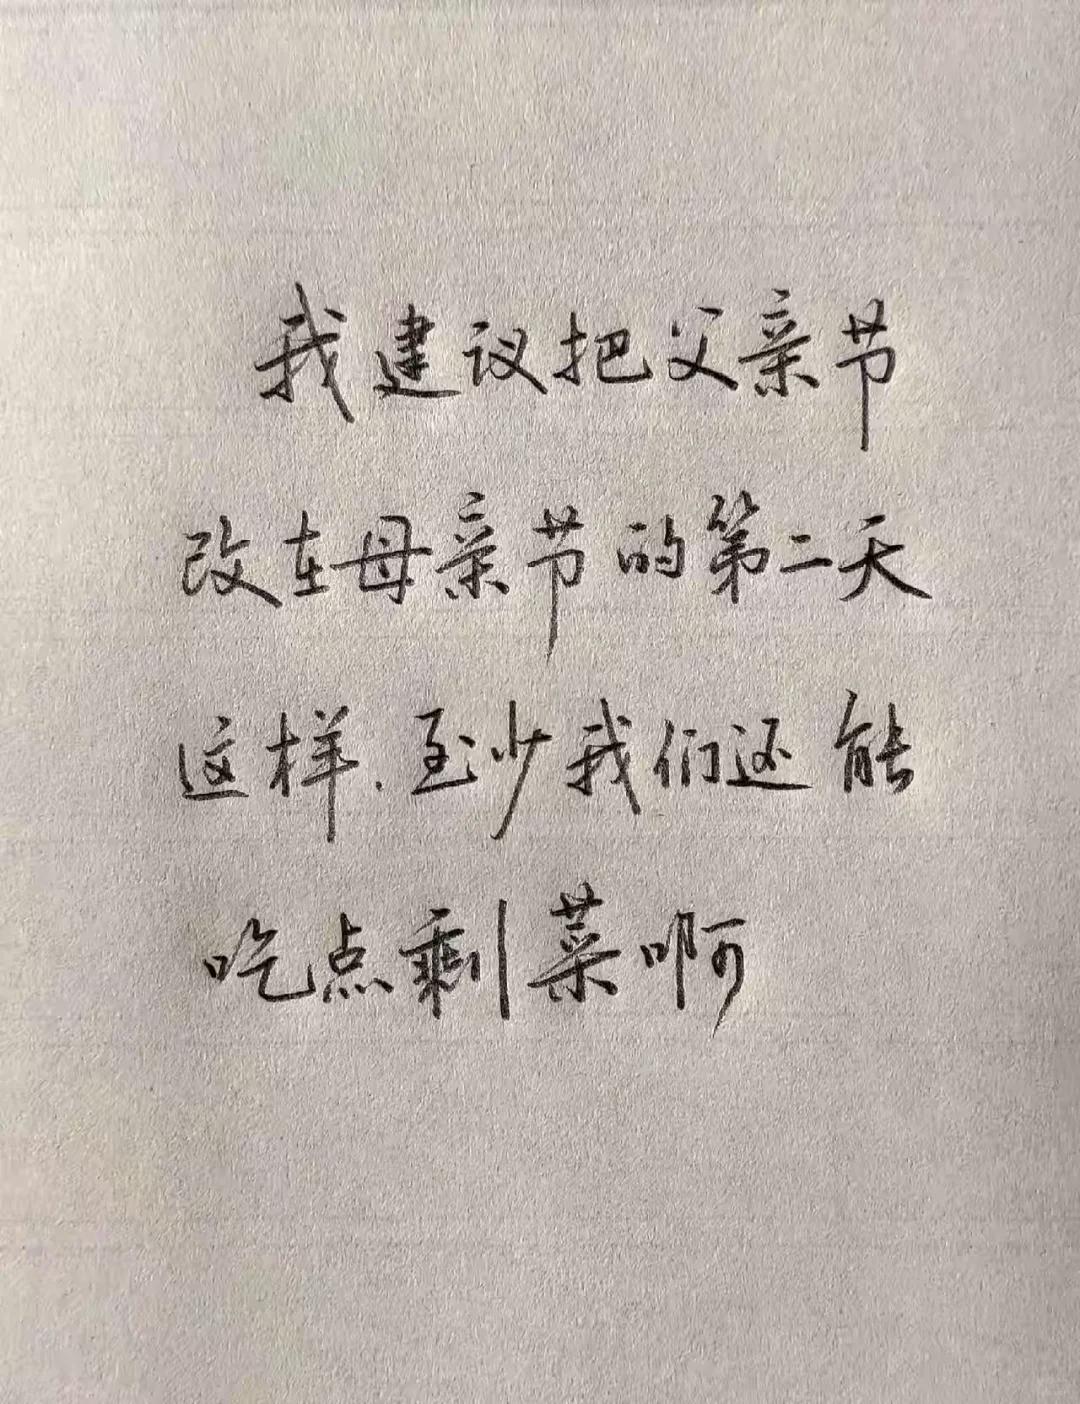 我建议把父亲节
改在母亲节的第二天
这样.至少我们还能
吃点剩菜啊